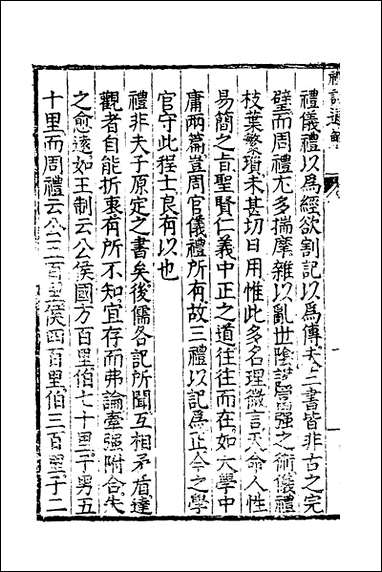 禮儀禮以為經欲割記以為傳夫三書皆非古之完
璧而周禮尤多揣摩雜以亂世陰謀富强之術儀禮
枝葉繁瑣未甚切日用惟此多名理微言天命人性
易簡之旨聖賢仁義中正之道往往而在如大學中
庸兩篇豈周官儀禮所有故三禮以記為正今之學
官守此程士良有以也
禮非夫子原定之書矣後儒各記所聞互相矛盾達
觀者自能折衷有所不知宜存而弗論牽强附合失
之愈遠如王制云公侯國方百里伯七十里子男五
十里而周禮云公五百里侯四百里伯三百里子二